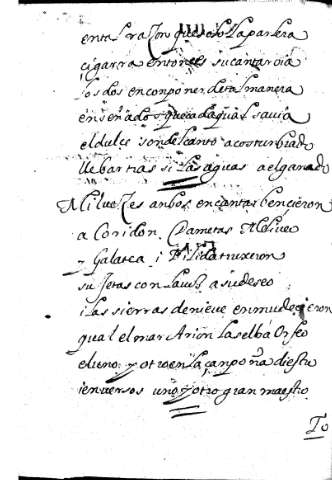 en tal razon que solo la parlera
cigarra entonces su cantar oia
los dos en componer de tal manera
enseñados que cada qual savia
el dulçe son del canto acostunbrado
llebar tras si las aguas a el ganado
Mil veçes anbos en cantar bençieron
a Coridon Dametas
y Galatea i Filida truxeron
sujetas con la voz a su deseo
i las sierras de nieve enmudecieron
qual el mar Arion la selba Orfeo
el uno y otro en la çanpoña diestro
i en versos uno y otro gran maestro
To